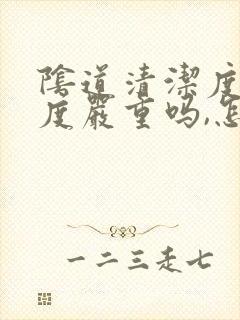 陰道清潔度
度嚴重吗,怎
一二三走七